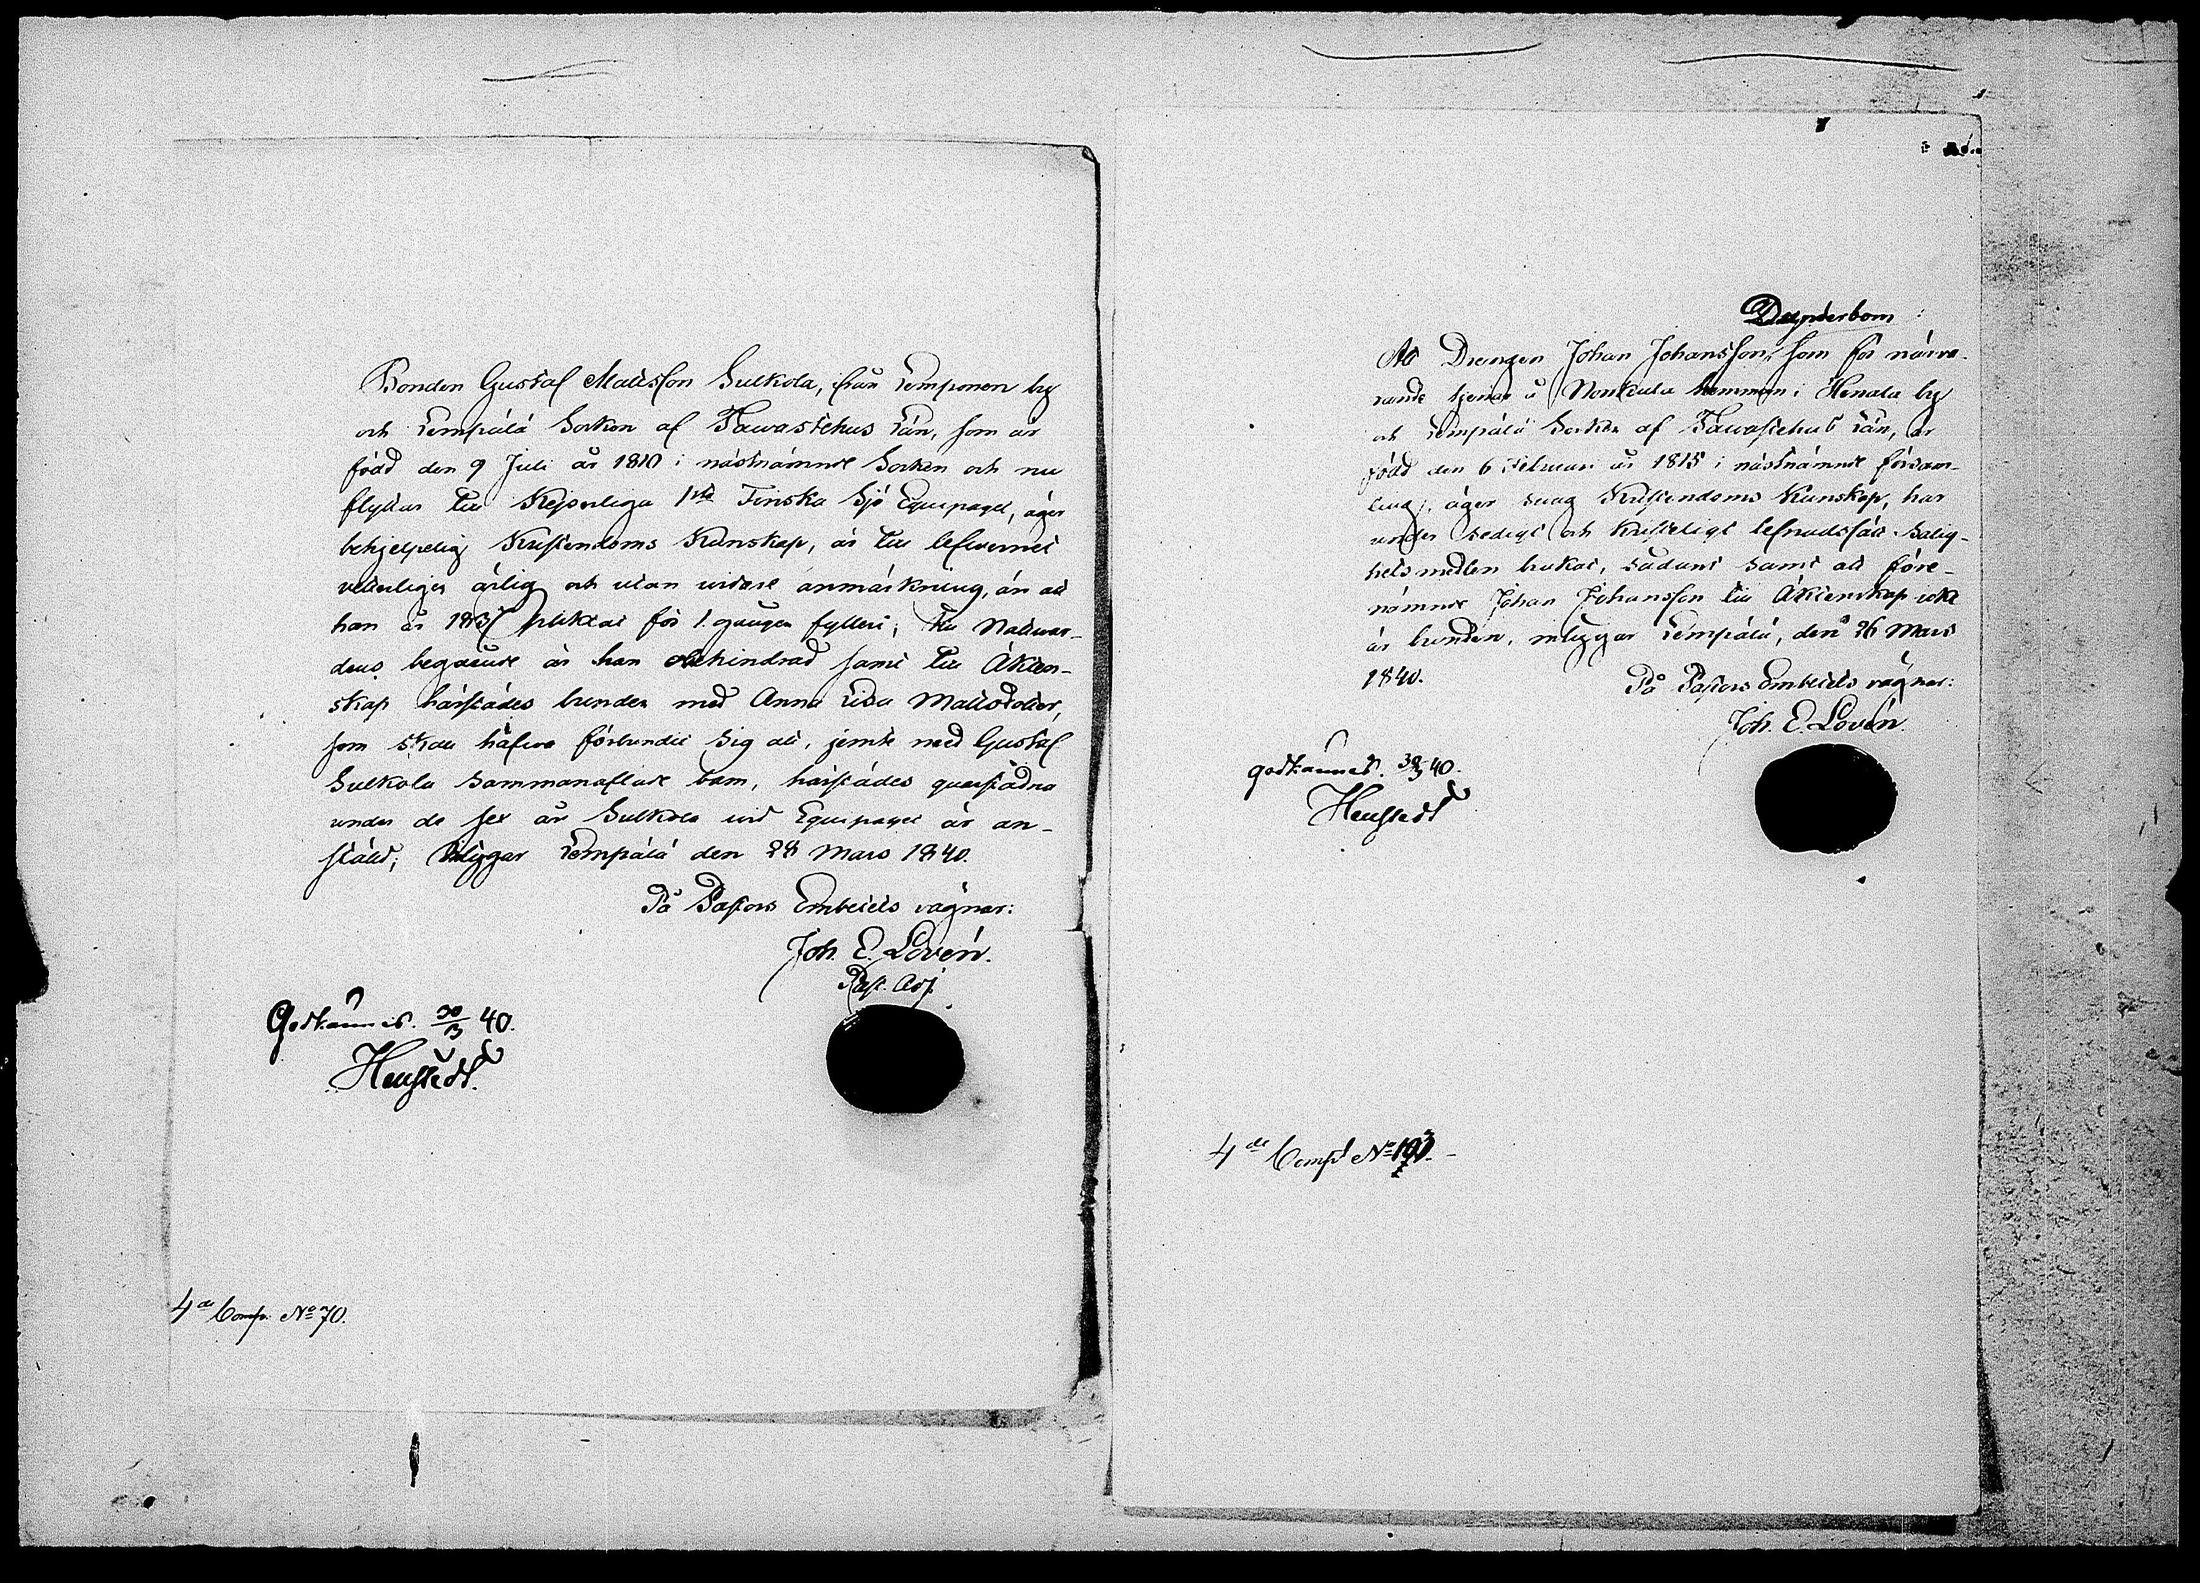 Bonden Gustaf Matsson Sulkola, från Lemponen by
och Lempälä Socken af Tawastehus Län, som är
född den 9 Juli år 1810 i nästnämnde Socken och nu
flyttar till Kejserliga 1sta Finska Sjö Equipaget, äger
behjelpelig Kristendoms Kunskap, är till lefwernet
veterligen ärlig och utan widare anmärkning, än att
han år 183 pliktat för 1. gången fylleri; till Nattvar-
dens begående är han obehindrad samt till Äkten-
skap härstädes bunden med Anna Lisa Matsdotter,
som skall häfwa förbundit sig att, jemte med Gustaf
Sulkola sammanaflade barn, härstädes quarstadna
under de sex år Sulkola wid Equipaget är an-
ställd; intygar Lempälä den 28 Mars 1840.
På Pastors Embetets vägnar:
Joh. E. Lovén.
Past. Adj.
Godkännes. 30/3 40.
Heustedt.
4de Comp. No 70.
Dunderbom:
Att Drengen Johan Johansson, som för närva-
rande tjenar å Nonkala hemman i Henala by
och Lempälä Socken af Tawastehus Län, är
född den 6 Februari år 1815 i nästnämnde försam-
ling, äger svag Kristendoms Kunskap, har
under sedigt och Kristeligt lefnadssätt Salig-
hets medlen brukat, sådant samt att före-
nämnde Johan Johansson till Äktenskap icke
är bunden, intygar Lempälä, den 26 Mars
1840.
På Pastors Embetets vägnar:
Joh. E. Lovén.
godkännes. 30/3 40.
Heustedt
4de Comp No